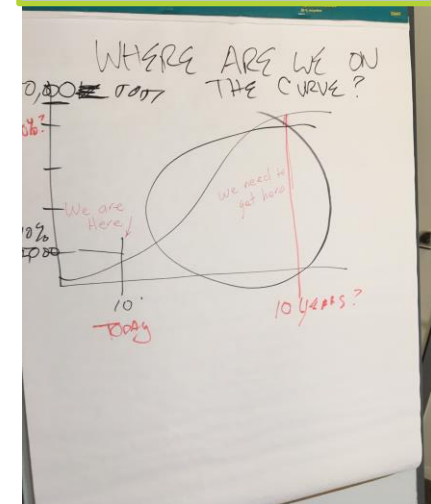 WHERE ARE WE ON
THE CURVE?
We are
Here
we need to
get here
10
TODAY
10 YEARS?